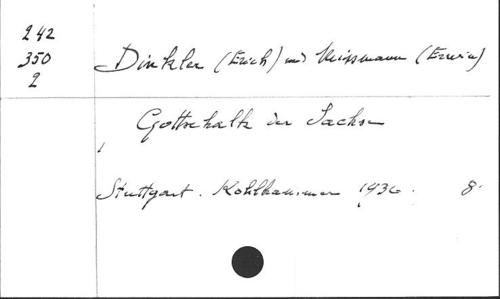 242
350
2
Dinkler (Erich) und Weissmann (Erwin)
Gottschalk der Sachse
Stuttgart. Kohlhammer 1936. 8°